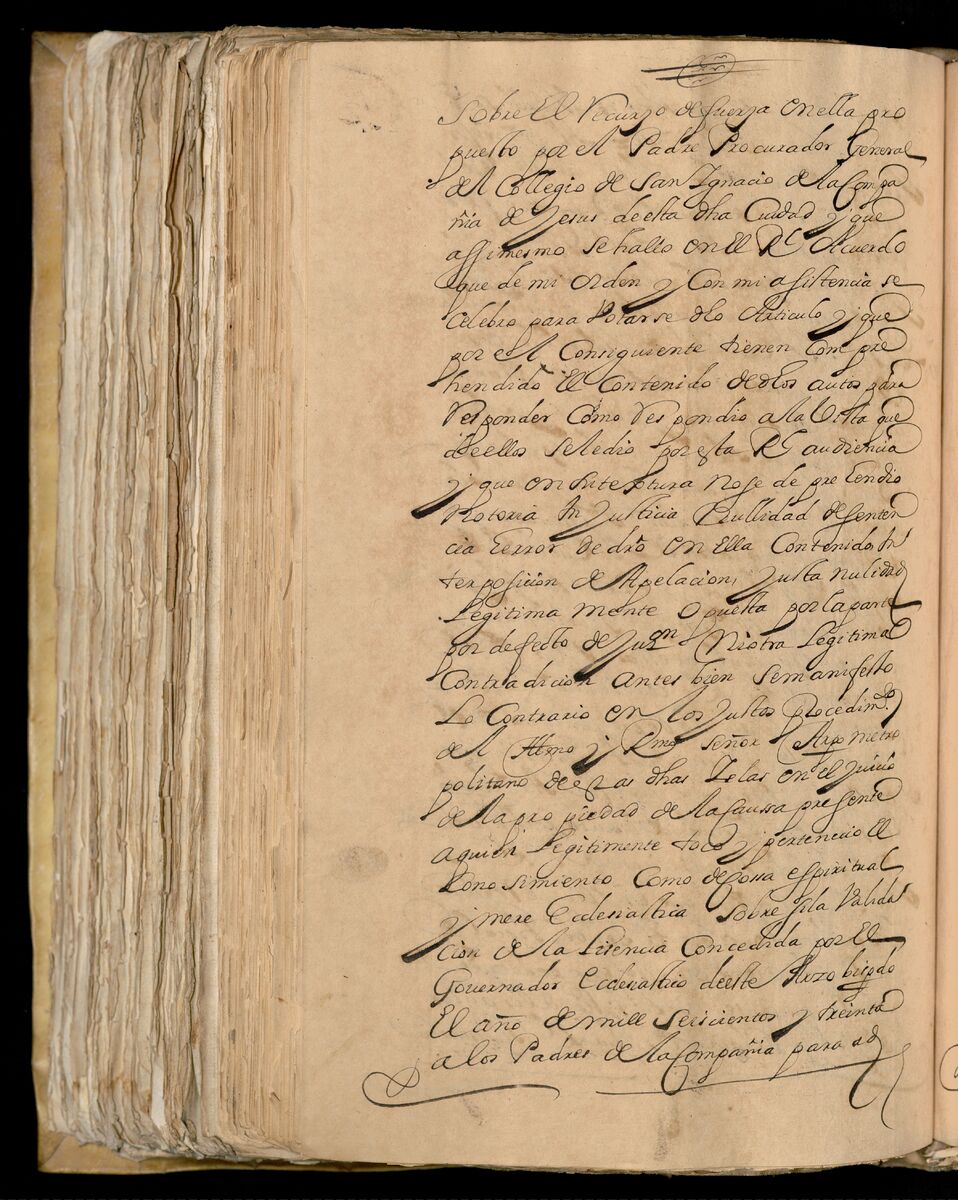 Sobre El Recurzo de fuerza en ella pro
puesto por el Padre Procurador General
del Collegio de San Ignacio de la Compa
ñia de Jesus de esta dha Ciudad y que
assimesmo se hallo en El Rl Acuerdo
que de mi orden y Con mi asistencia se
Celebro para Votarse dho Articulo y que
por el Consiguiente tienen Compre
hendido El Contenido de dhos autos para
Responder Como Respondio a la Vista que
de ellos se le dio por esta Rl audiencia
y que en su no se de pre tendio
Notoria In Justicia Nullidad de senten
cia error de dro en Ella Contenido, In
terposicion de Apelacion, Justa nulidad
Legitima mente opuesta por la parte
por defecto de Jurn Ni otra Legitima
Contradicion antes bien se manifesto
Lo Contrario en los Justos procedimtos
del Illmo y Rmo señor Arzpo metro
politano de estas dhas Islas en el Juicio
de la pro piedad de la Caussa presente
a quien Legitimente toco y pertenecio El
Conosimiento Como de Cossa espiritual
y mere Ecclesiastica sobre si la Valida
cion de la Lisencia Concedida por El
Governador Ecclesiastico de este Arzobispdo
El año de mill seiscientos y treinta
a los Padres de la Compañia para ad